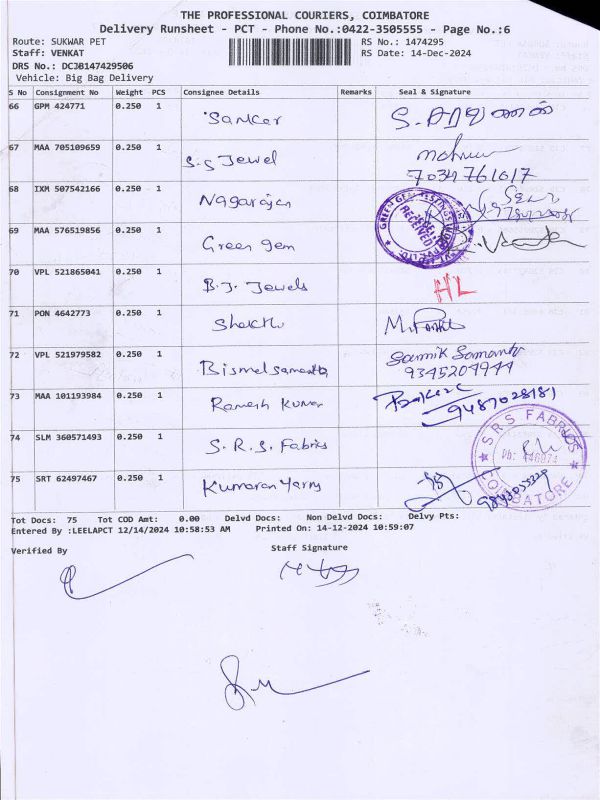 THE PROFESSIONAL COURIERS, COIMBATORE
Delivery Runsheet - PCT - Phone No.:0422-3505555 - Page No.:6
Route: SUKWAR PET RS No.: 1474295
Staff: VENKAT RS Date: 14-Dec-2024
DRS No.: DCJB147429506
Vehicle: Big Bag Delivery
S No Consignment No Weight PCS Consignee Details Remarks Seal & Signature
66 GPM 424771 0.250 1 Sanker
67 MAA 705109659 0.250 1 S.S Jewel
7034761617
68 IXM 507542166 0.250 1 Nagarajan
69 MAA 576519856 0.250 1 Green gem
RECEIVED
70 VPL 521865041 0.250 1 B.J. Jewels HL
71 PON 4642773 0.250 1 Shakthi
72 VPL 521979582 0.250 1 Bismel samanta Soumik Samanta
9345204944
73 MAA 101193984 0.250 1 Ramesh Kumar
9487028181
74 SLM 360571493 0.250 1 S.R.S. Fabrics SRS FABRICS
COIMBATORE
75 SRT 62497467 0.250 1 Kumaran Yarns
Tot Docs: 75 Tot COD Amt: 0.00 Delvd Docs: Non Delvd Docs: Delvy Pts:
Entered By :LEELAPCT 12/14/2024 10:58:53 AM Printed On: 14-12-2024 10:59:07
Verified By Staff Signature